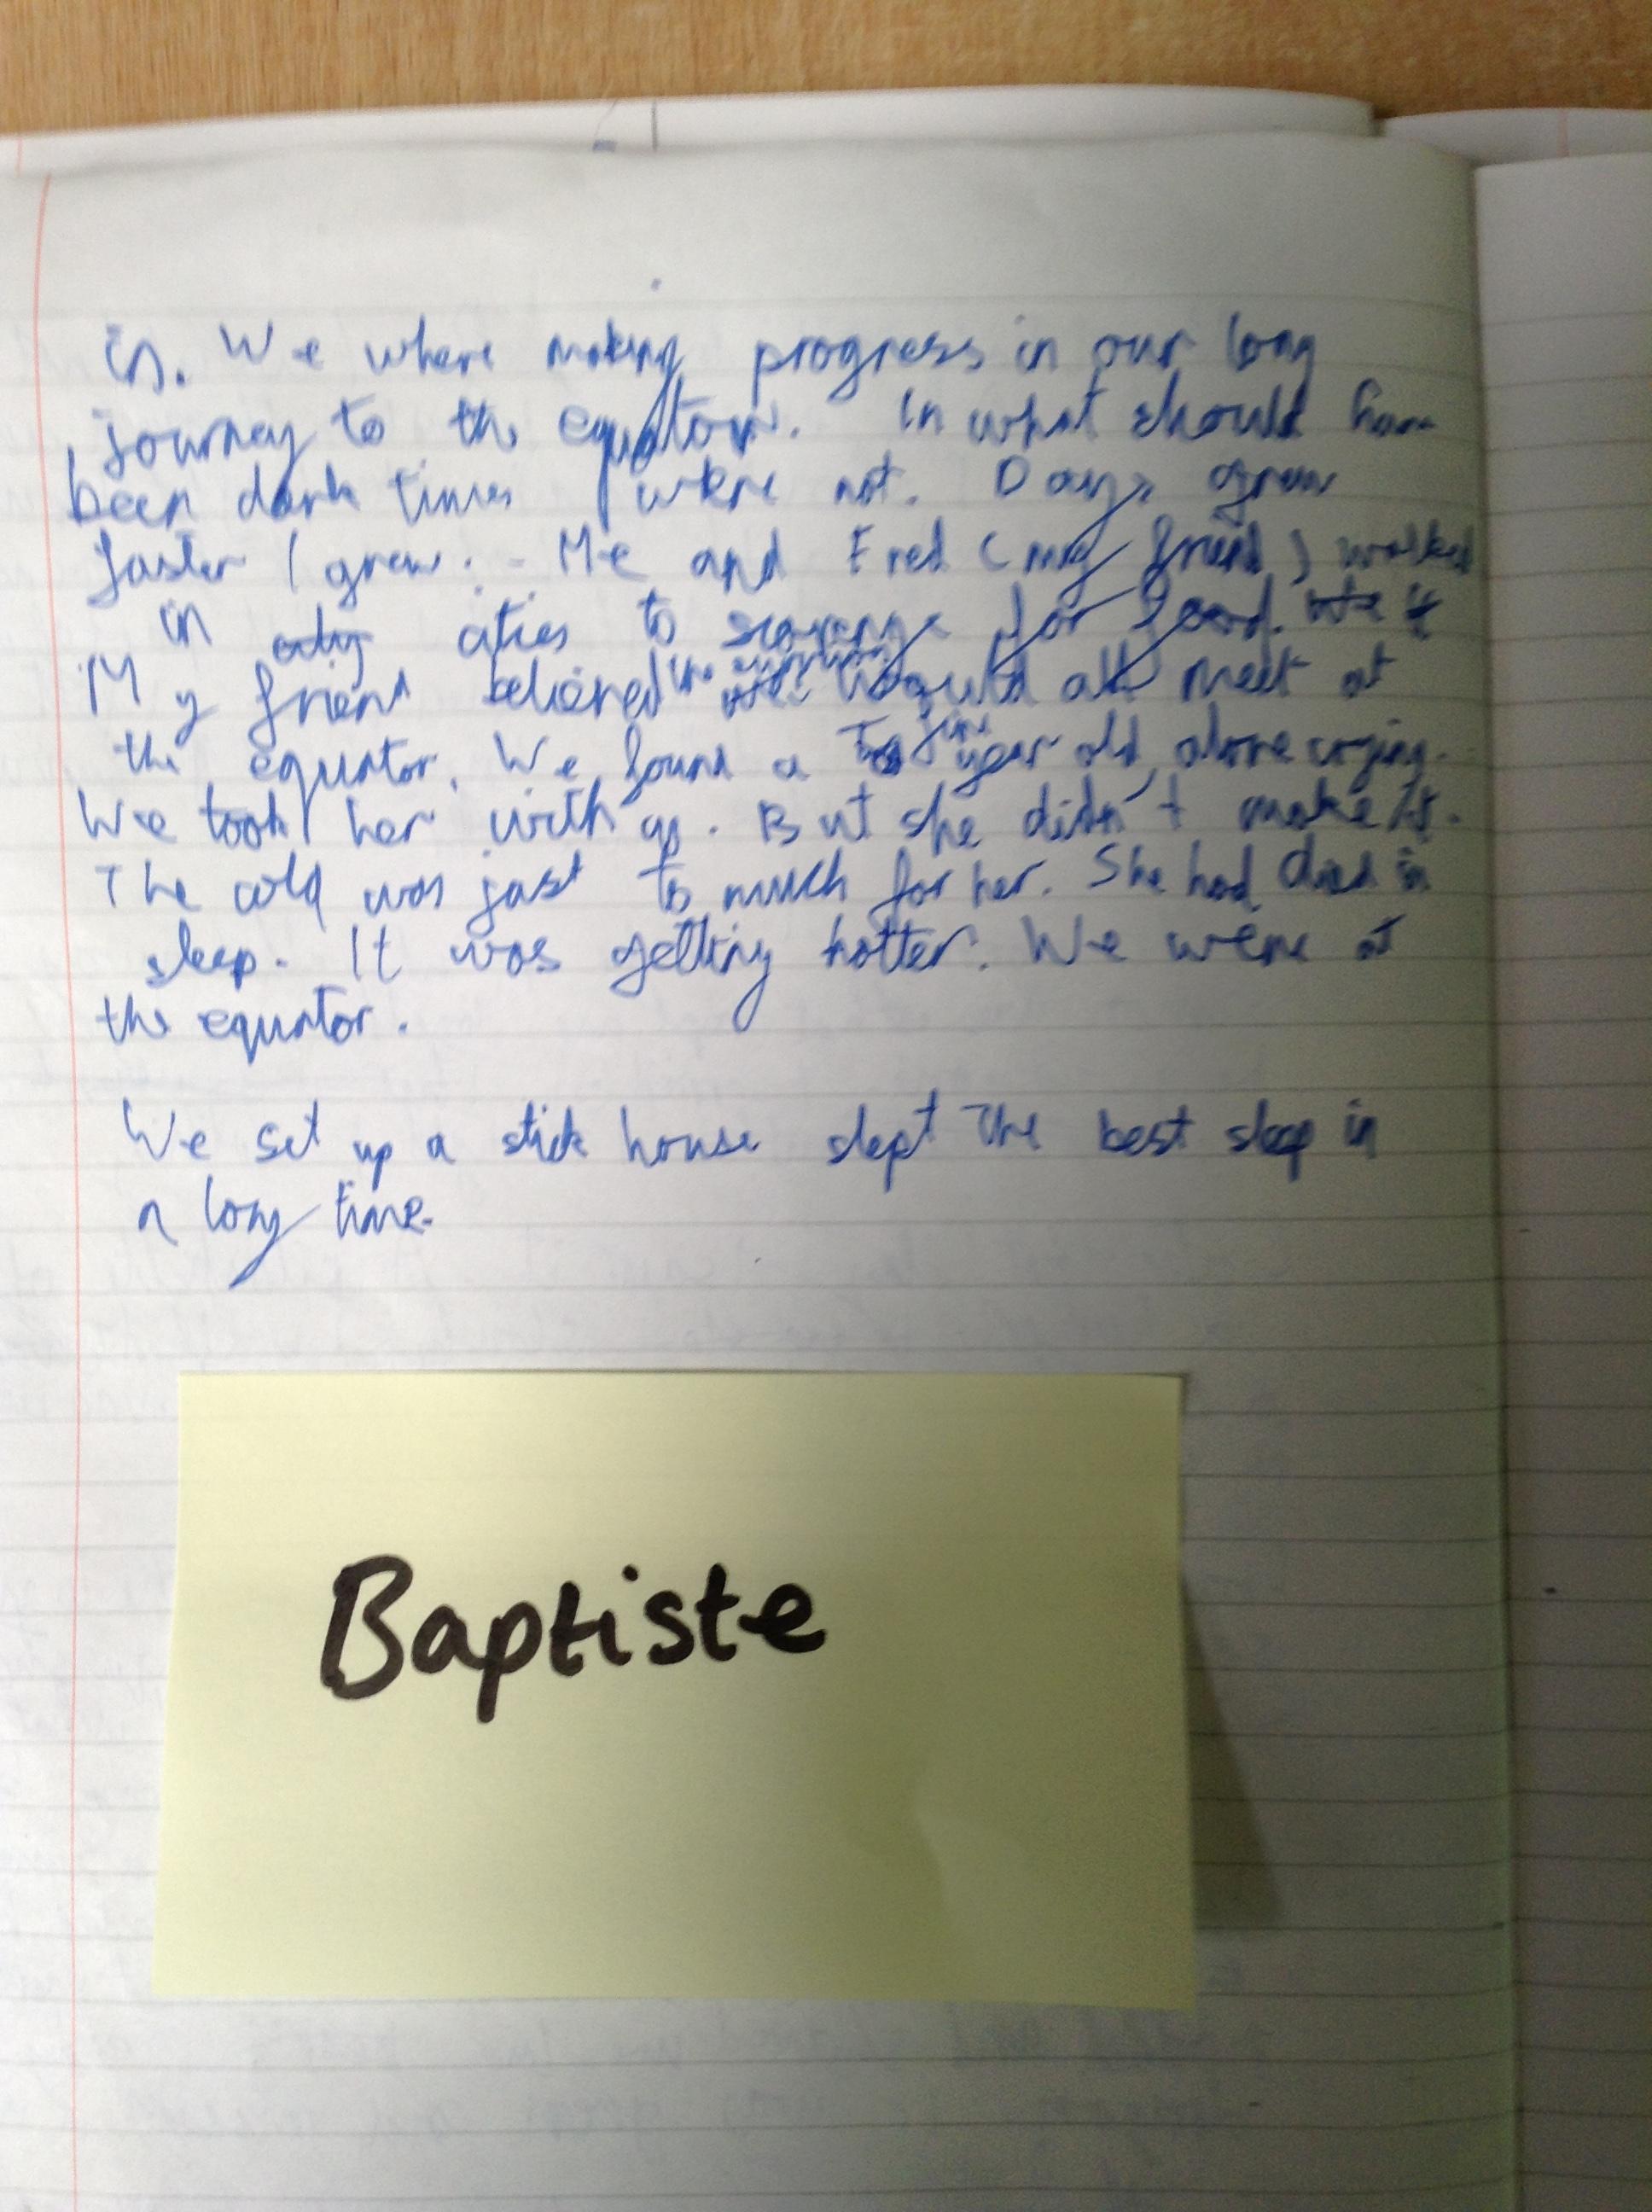 in. We where making progress in our long
journey to the equator. In what should have
been dark times where not. Days grew
faster I grew. Me and Fred (my friend) walked
in cities to scavenge for food.
My friend believed the would all meet at
the equator. We found a five year old alone crying.
We took her with us. But she didn't make it.
The cold was just to much for her. She had died in
sleep. It was getting hotter. We were at
the equator.
We set up a stick house slept The best sleep in
a long time.
Baptiste